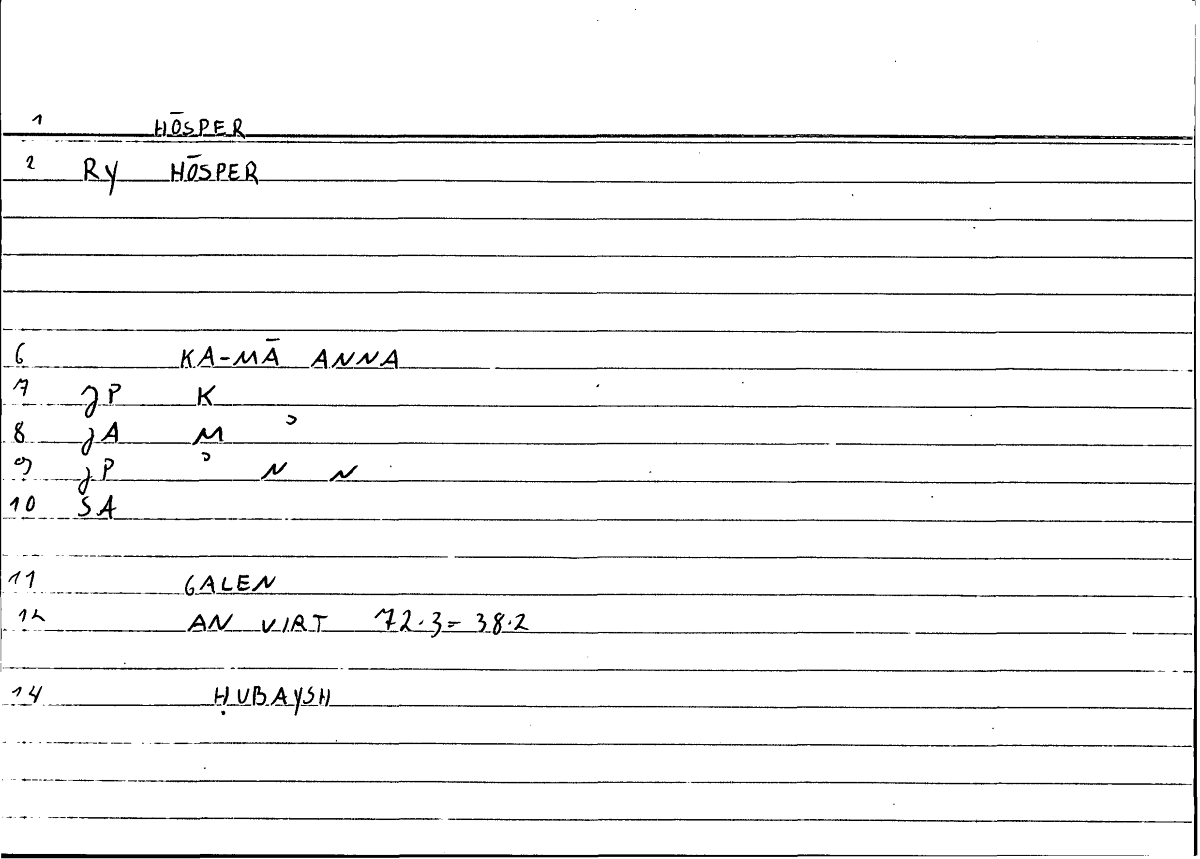 1 HŌSPER
2 RY HŌSPER
6 KA-MĀ ANNA
7 JP K
8 JA M ʾ
9 JP ʾ N N
10 SA
11 GALEN
12 AN VIRT 72.3= 38.2
14 ḤUBAYSH